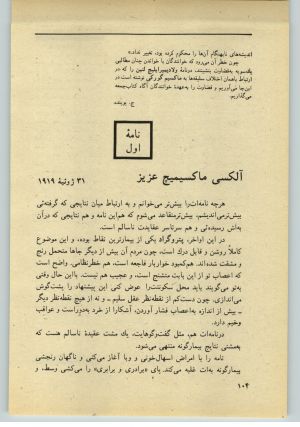 اندیشه‌های نابهنگام آن‌ها را محکوم کرده بود، تغییر نداد.»
چون خطر آن می‌رود که خوانندگان با خواندن چنان مطالبی
یک‌سویه به‌قضاوت بنشینند، دو نامهٔ ولادیمیر ایلیچ لنین را که در
ارتباط با همان اختلاف سلیقه‌ها به ماکسیم گورکی نوشته است در
این‌جا می‌آوریم و قضاوت را به‌عهدهٔ خوانندگان آگاه کتاب‌جمعه
می‌گذاریم.
ج. پوینده
نامهٔ
اول
آلکسی ماکسیمیچ عزیز
۳۱ ژوئیهٔ ۱۹۱۹
هرچه نامه‌ات را بیش‌تر می‌خوانم و به ارتباط میان نتایجی که گرفته‌ئی
بیش‌تر می‌اندیشم، بیش‌تر متقاعد می‌شوم که هم این نامه و هم نتایجی که در آن
به‌اش رسیده‌ئی و هم سرتاسر عقایدت ناسالم است.
در این اواخر، پتروگراد یکی از بیمارترین نقاط بوده، و این موضوع
کاملاً روشن و قابل درک است، چون مردم آن بیش از دیگر جاها متحمل رنج
و مشقت شده‌اند. هم کمبود خواربار فاجعه است، هم خطر نظامی. واضح است
که اعصاب تو از این بابت متشنج است، و عجیب هم نیست. با این حال وقتی
به‌تو می‌گویند باید محل سکونتت را عوض کنی این پیشنهاد را پشت‌گوش
می‌اندازی. چون دست‌کم از نقطه‌نظر عقل سلیم ـ و نه از هیچ نقطه‌نظر دیگر
ـ بیش از اندازه به‌اعصاب فشار آوردن، آشکارا از خرد به‌دور است و عواقب
وخیم دارد.
در نامه‌ات هم، مثل گفت‌وگوهایت، یک مشت عقیدهٔ ناسالم هست که
به‌مشتی نتایج بیمارگونه منتهی می‌شود.
نامه را با امراض اسهال‌خونی و وبا آغاز می‌کنی و ناگهان رنجشی
بیمارگونه به‌ات غلبه می‌کند. پای «برادری و برابری» را می‌کشی وسط، و
۱۰۴